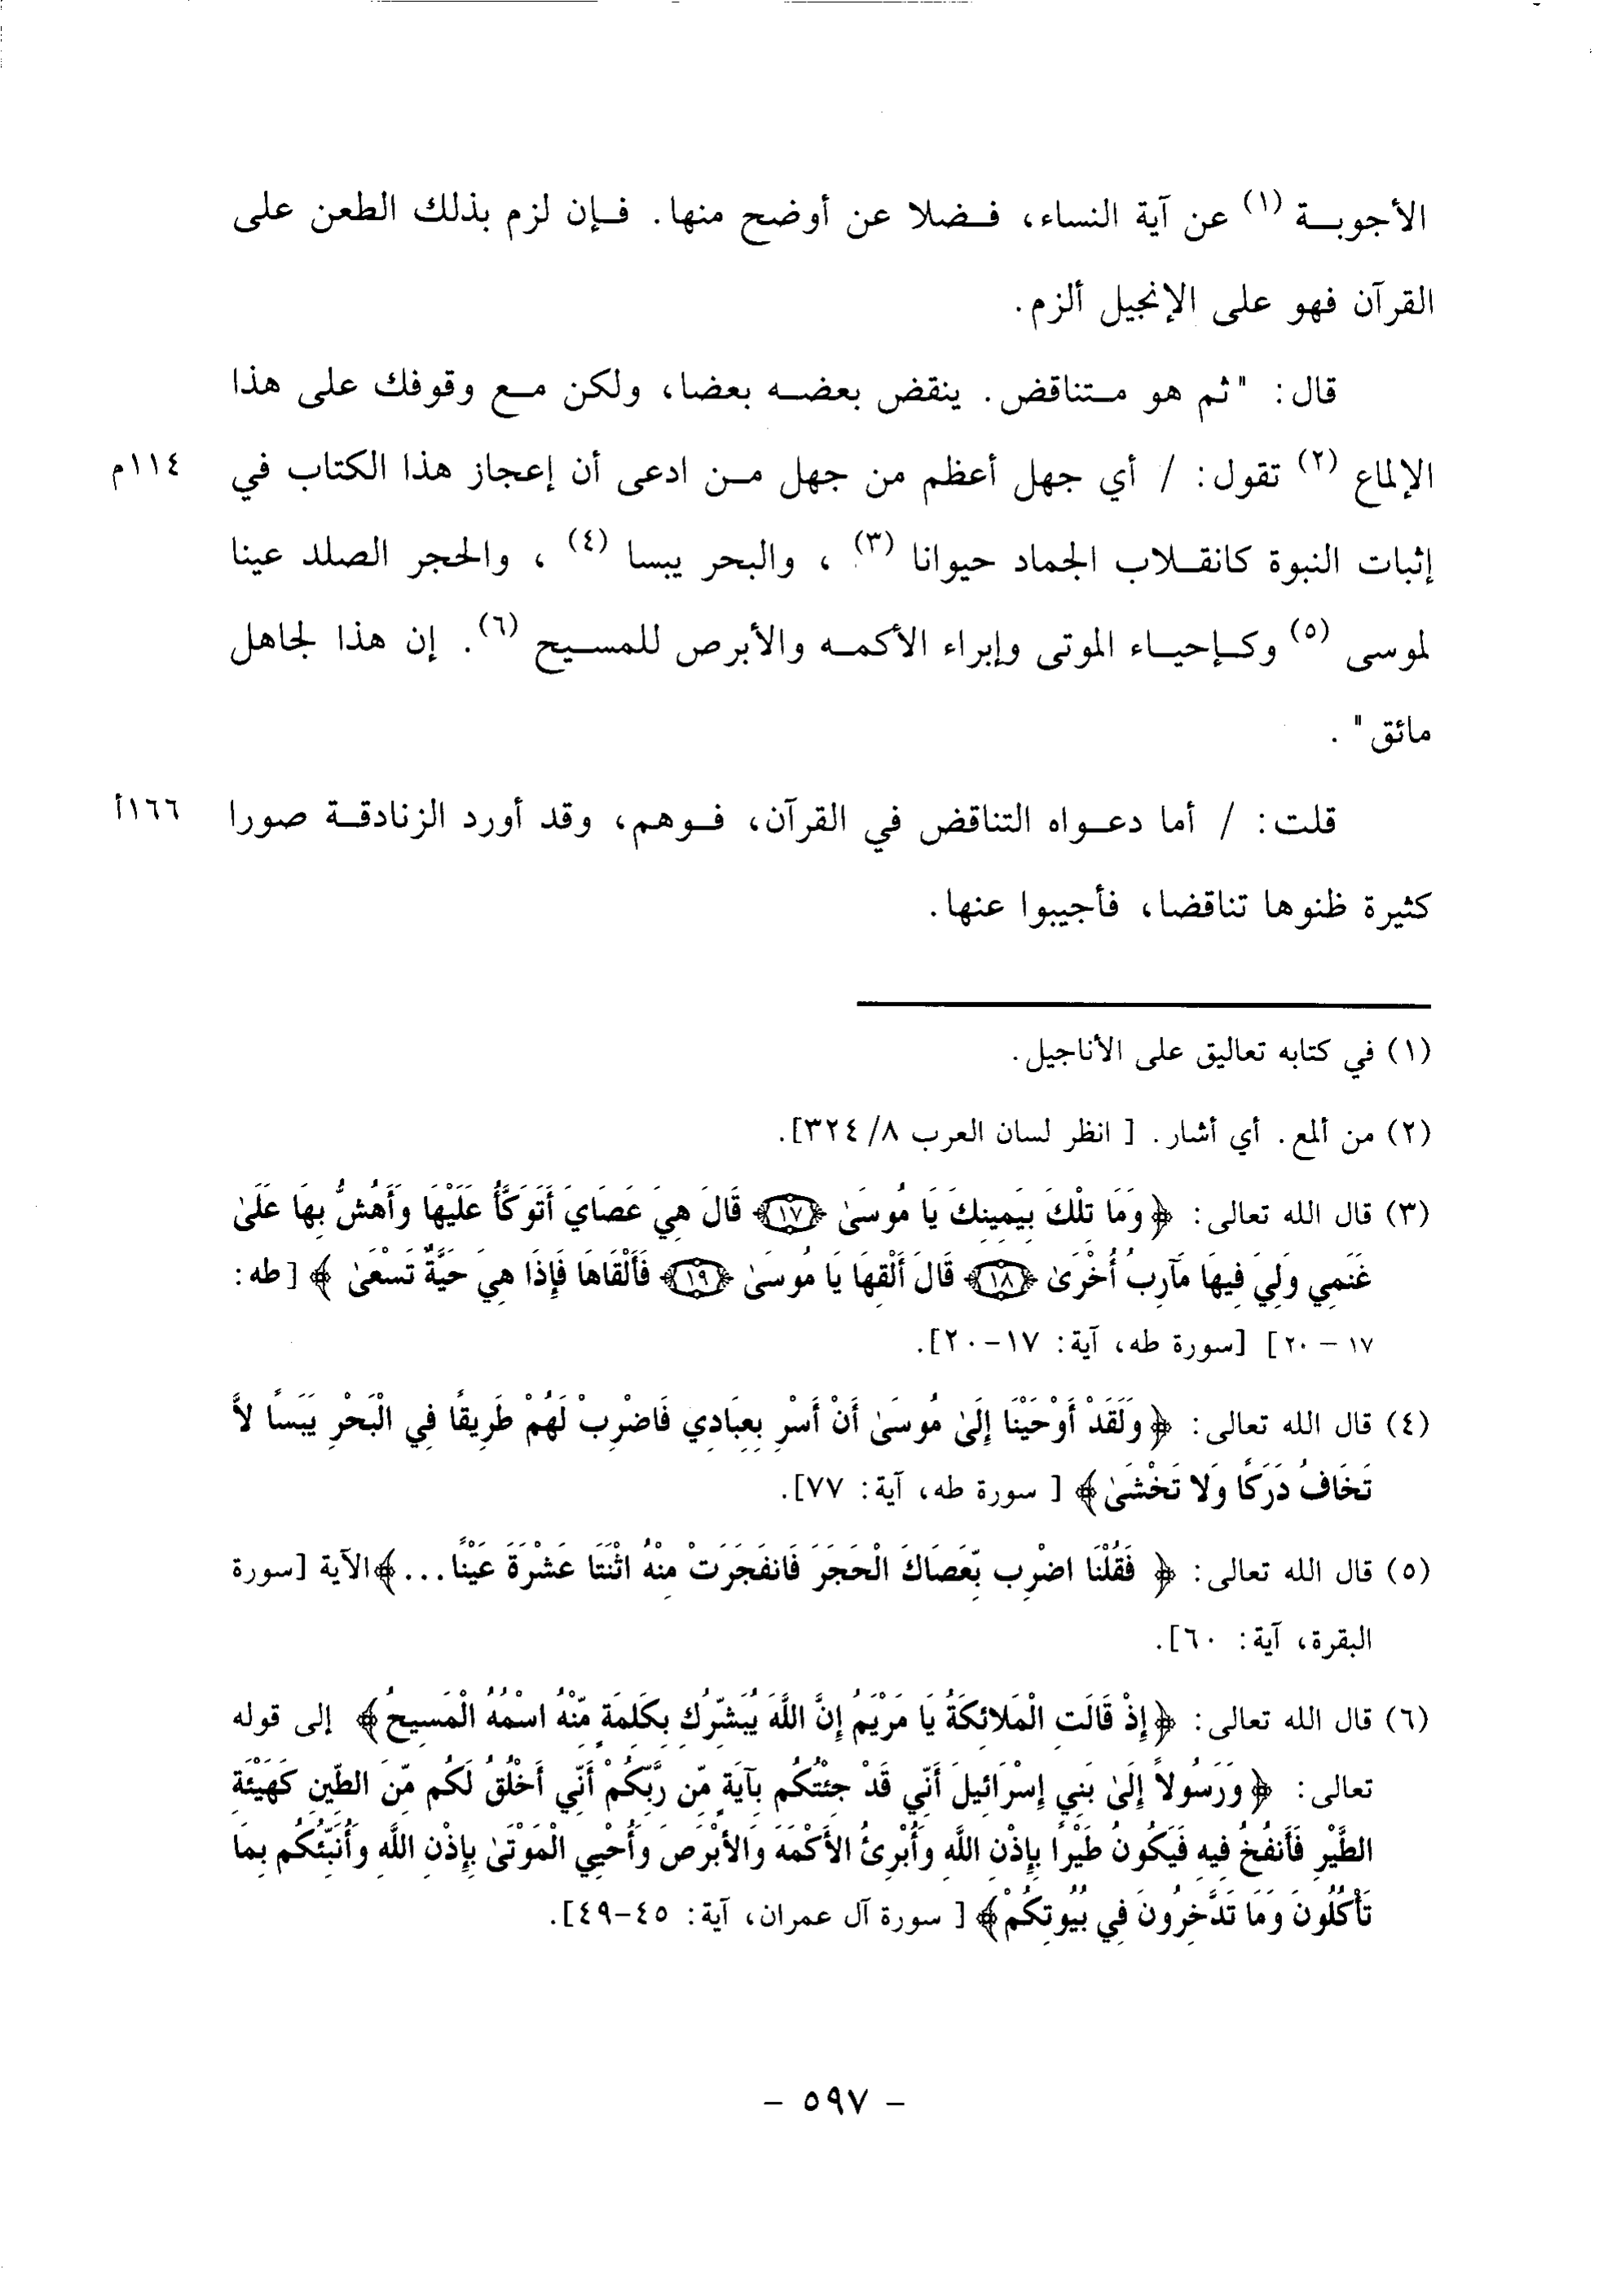 الأجوبة (١) عن آية النساء، فضلا عن أوضح منها. فإن لزم بذلك الطعن على
القرآن فهو على الإنجيل ألزم.
قال: "ثم هو متناقض. ينقض بعضه بعضا، ولكن مع وقوفك على هذا
الإلماع (٢) تقول: / أي جهل أعظم من جهل من ادعى أن إعجاز هذا الكتاب في ١١٤م
إثبات النبوة كانقلاب الجماد حيوانا (٣)، والبحر يبسا (٤)، والحجر الصلد عينا
لموسى (٥) وكإحياء الموتى وإبراء الأكمه والأبرص للمسيح (٦). إن هذا لجاهل
مائق".
قلت: / أما دعواه التناقض في القرآن، فوهم، وقد أورد الزنادقة صورا ١٦٦أ
كثيرة ظنوها تناقضا، فأجيبوا عنها.
(١) في كتابه تعاليق على الأناجيل.
(٢) من ألمع. أي أشار. [ انظر لسان العرب ٨/ ٣٢٤].
(٣) قال الله تعالى: ﴿وَمَا تِلْكَ بِيَمِينِكَ يَا مُوسَىٰ ﴿١٧﴾ قَالَ هِيَ عَصَايَ أَتَوَكَّأُ عَلَيْهَا وَأَهُشُّ بِهَا عَلَىٰ
غَنَمِي وَلِيَ فِيهَا مَآرِبُ أُخْرَىٰ ﴿١٨﴾ قَالَ أَلْقِهَا يَا مُوسَىٰ ﴿١٩﴾ فَأَلْقَاهَا فَإِذَا هِيَ حَيَّةٌ تَسْعَىٰ ﴾ [طه:
١٧ – ٢٠] [سورة طه، آية: ١٧-٢٠].
(٤) قال الله تعالى: ﴿وَلَقَدْ أَوْحَيْنَا إِلَىٰ مُوسَىٰ أَنْ أَسْرِ بِعِبَادِي فَاضْرِبْ لَهُمْ طَرِيقًا فِي الْبَحْرِ يَبَسًا لاَّ
تَخَافُ دَرَكًا وَلا تَخْشَىٰ﴾ [ سورة طه، آية: ٧٧].
(٥) قال الله تعالى: ﴿ فَقُلْنَا اضْرِب بِّعَصَاكَ الْحَجَرَ فَانفَجَرَتْ مِنْهُ اثْنَتَا عَشْرَةَ عَيْنًا...﴾الآية [سورة
البقرة، آية: ٦٠].
(٦) قال الله تعالى: ﴿إِذْ قَالَتِ الْمَلائِكَةُ يَا مَرْيَمُ إِنَّ اللَّهَ يُبَشِّرُكِ بِكَلِمَةٍ مِّنْهُ اسْمُهُ الْمَسِيحُ﴾ إلى قوله
تعالى: ﴿وَرَسُولاً إِلَىٰ بَنِي إِسْرَائِيلَ أَنِّي قَدْ جِئْتُكُم بِآيَةٍ مِّن رَّبِّكُمْ أَنِّي أَخْلُقُ لَكُم مِّنَ الطِّينِ كَهَيْئَةِ
الطَّيْرِ فَأَنفُخُ فِيهِ فَيَكُونُ طَيْرًا بِإِذْنِ اللَّهِ وَأُبْرِئُ الأَكْمَهَ وَالأَبْرَصَ وَأُحْيِي الْمَوْتَىٰ بِإِذْنِ اللَّهِ وَأُنَبِّئُكُم بِمَا
تَأْكُلُونَ وَمَا تَدَّخِرُونَ فِي بُيُوتِكُمْ﴾ [ سورة آل عمران، آية: ٤٥-٤٩].
– ٥٩٧ –